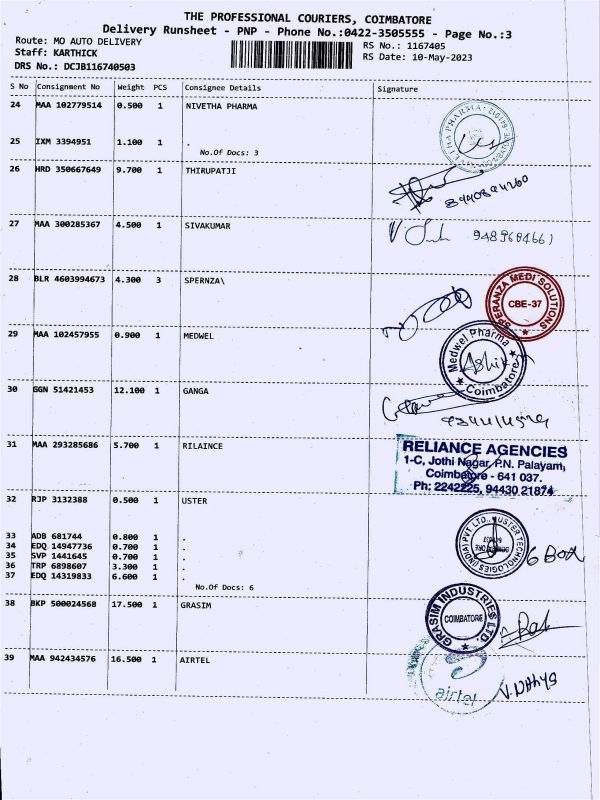 THE PROFESSIONAL COURIERS, COIMBATORE
Delivery Runsheet - PNP - Phone No.:0422-3505555 - Page No.:3
Route: MO AUTO DELIVERY
RS No.: 1167405
Staff: KARTHICK
RS Date: 10-May-2023
DRS No.: DCJB116740503
S No Consignment No Weight PCS Consignee Details Signature
24 MAA 102779514 0.500 1 NIVETHA PHARMA
25 IXM 3394951 1.100 1 .
No.Of Docs: 3
26 HRD 350667649 9.700 1 THIRUPATJI
27 MAA 300285367 4.500 1 SIVAKUMAR
28 BLR 4603994673 4.300 3 SPERNZA\
SPERANZA MEDI SOLUTIONS
CBE-37
29 MAA 102457955 0.900 1 MEDWEL
Medwel Pharma
Coimbatore
30 GGN 51421453 12.100 1 GANGA
31 MAA 293285686 5.700 1 RILAINCE
RELIANCE AGENCIES
1-C, Jothi Nagar, P.N. Palayam,
Coimbatore - 641 037.
Ph: 2242225, 94430 21874
32 RJP 3132388 0.500 1 USTER
USTER TECHNOLOGIES (INDIA) PVT LTD.,
6 Box
33 ADB 681744 0.800 1 .
34 EDQ 14947736 0.700 1 .
35 SVP 1441645 0.700 1 .
36 TRP 6898607 3.300 1 .
37 EDQ 14319833 6.600 1 .
No.Of Docs: 6
38 BKP 500024568 17.500 1 GRASIM
GRASIM INDUSTRIES LTD.
COIMBATORE
39 MAA 942434576 16.500 1 AIRTEL
airtel